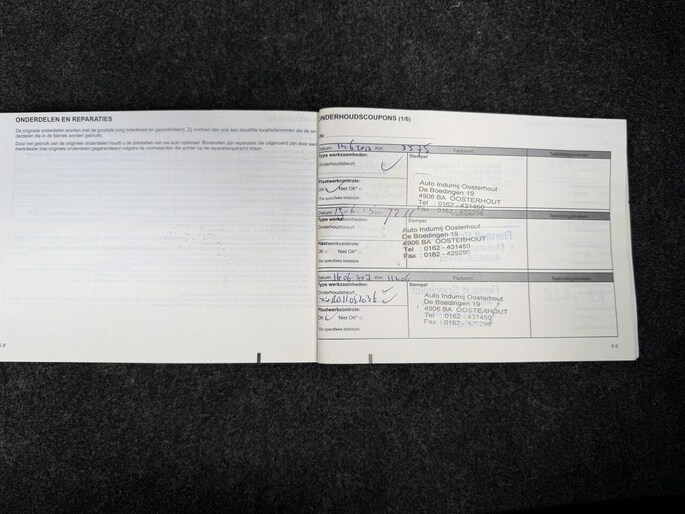 ONDERDELEN EN REPARATIES
De originele onderdelen worden met de grootste zorg ontwikkeld en gecontroleerd. Zij voldoen dan ook aan dezelfde kwaliteitsnormen als de on-
derdelen die in de fabriek worden gebruikt.
Door het gebruik van de originele onderdelen houdt u de prestaties van uw auto optimaal. Bovendien zijn reparaties die uitgevoerd zijn door een
merkdealer met originele onderdelen gegarandeerd volgens de voorwaarden die achter op de reparatieopdracht staan.
ONDERHOUDSCOUPONS (1/6)
Datum: Km: 3575 Factuurnr.:
Type werkzaamheden: Stempel
Onderhoudsbeurt
Plaatwerkcontrole:
OK Niet OK*
Zie specifieke bladzijde
Auto Indumij Oosterhout
De Boedingen 19
4906 BA OOSTERHOUT
Tel : 0162 - 431450
Datum:
Type werkzaamheden: Stempel
Onderhoudsbeurt
Plaatwerkcontrole:
OK Niet OK*
Zie specifieke bladzijde
Auto Indumij Oosterhout
De Boedingen 19
4906 BA OOSTERHOUT
Tel : 0162 - 431450
Fax : 0162 - 429296
Datum: Km: Factuurnr.:
Type werkzaamheden: Stempel
Onderhoudsbeurt
Plaatwerkcontrole:
OK Niet OK*
Zie specifieke bladzijde
Auto Indumij Oosterhout
De Boedingen 19
4906 BA OOSTERHOUT
Tel : 0162 - 431450
Fax : 0162 - 429296